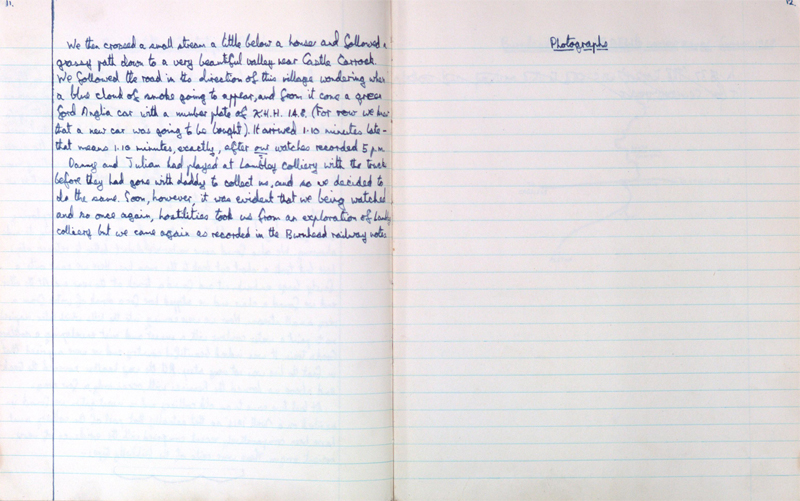 11.
We then crossed a small stream a little below a house and followed a
grassy path down to a very beautiful valley near Castle Carrock.
We followed the road in the direction of this village wondering when
a blue cloud of smoke going to appear, and from it come a green
Ford Anglia car with a number plate of X.H.H. 148. (For now we knew
that a new car was going to be bought). It arrived 1·10 minutes late -
that means 1·10 minutes, exactly, after our watches recorded 5 p.m.
Danny and Julian had played at Lambley colliery with the truck
before they had gone with daddy to collect us, and so we decided to
do the same. Soon, however, it was evident that we being watched
and so once again, hostilities took us from an exploration of Lambley
colliery but we came again as recorded in the Burnhead railway notes
12.
Photographs